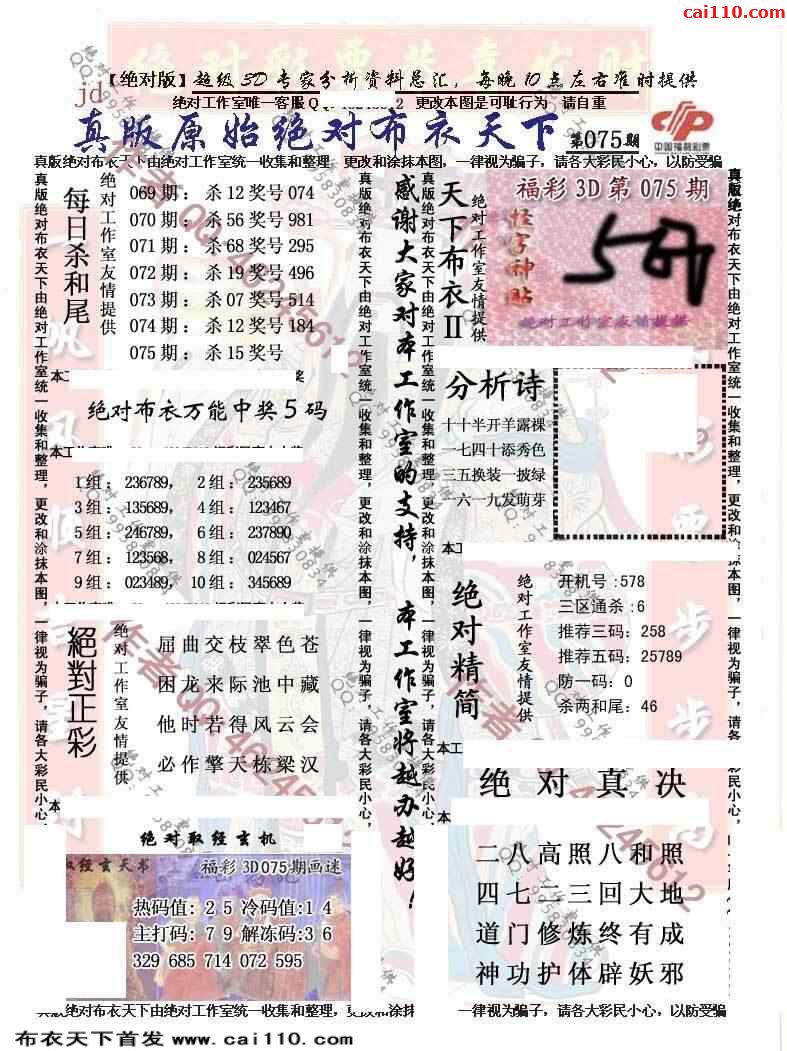 cai110.com
【绝对版】超级3D专家分析资料总汇，每晚10点左右准时提供
jd
绝对工作室唯一客服Q 2 更改本图是可耻行为 请自重
真版原始绝对布衣天下 第075期
中国福利彩票
真版绝对布衣天下由绝对工作室统一收集和整理，更改和涂抹本图，一律视为骗子，请各大彩民小心，以防受骗
每日杀和尾
绝对工作室友情提供
069期：杀12奖号074
070期：杀56奖号981
071期：杀68奖号295
072期：杀19奖号496
073期：杀07奖号514
074期：杀12奖号184
075期：杀15奖号
绝对布衣万能中奖5码
1组：236789，2组：235689
3组：135689，4组：123467
5组：246789，6组：237890
7组：123568，8组：024567
9组：023489，10组：345689
絕對正彩
绝对工作室友情提供
屈曲交枝翠色苍
困龙来际池中藏
他时若得风云会
必作擎天栋梁汉
绝对取经玄机
取经玄天书 福彩3D075期画迷
热码值：25冷码值：14
主打码：79解冻码：36
329 685 714 072 595
感谢大家对本工作室的支持，本工作室将越办越好！
天下布衣II
绝对工作室友情提供
福彩3D第075期
怪字神贴
绝对工作室友情提供
分析诗
十十半开羊露裸
一七四十添秀色
三五换装一披绿
一六一九发萌芽
绝对精简
绝对工作室友情提供
开机号:578
三区通杀:6
推荐三码:258
推荐五码:25789
防一码:0
杀两和尾:46
绝对真决
二八高照八和照
四七二三回大地
道门修炼终有成
神功护体辟妖邪
真版绝对布衣天下由绝对工作室统一收集和整理，更改和涂抹本图，一律视为骗子，请各大彩民小心，
真版绝对布衣天下由绝对工作室统一收集和整理，更改和涂抹本图，一律视为骗子，请各大彩民小心，
真版绝对布衣天下由绝对工作室统一收集和整理，更改和涂抹本图，一律视为骗子，请各大彩民小心，
真版绝对布衣天下由绝对工作室统一收集和整理，更改和涂抹本图，一律视为骗子，请各大彩民小心，
真版绝对布衣天下由绝对工作室统一收集和整理，更改和涂抹 一律视为骗子，请各大彩民小心，以防受骗
布衣天下首发 www.cai110.com